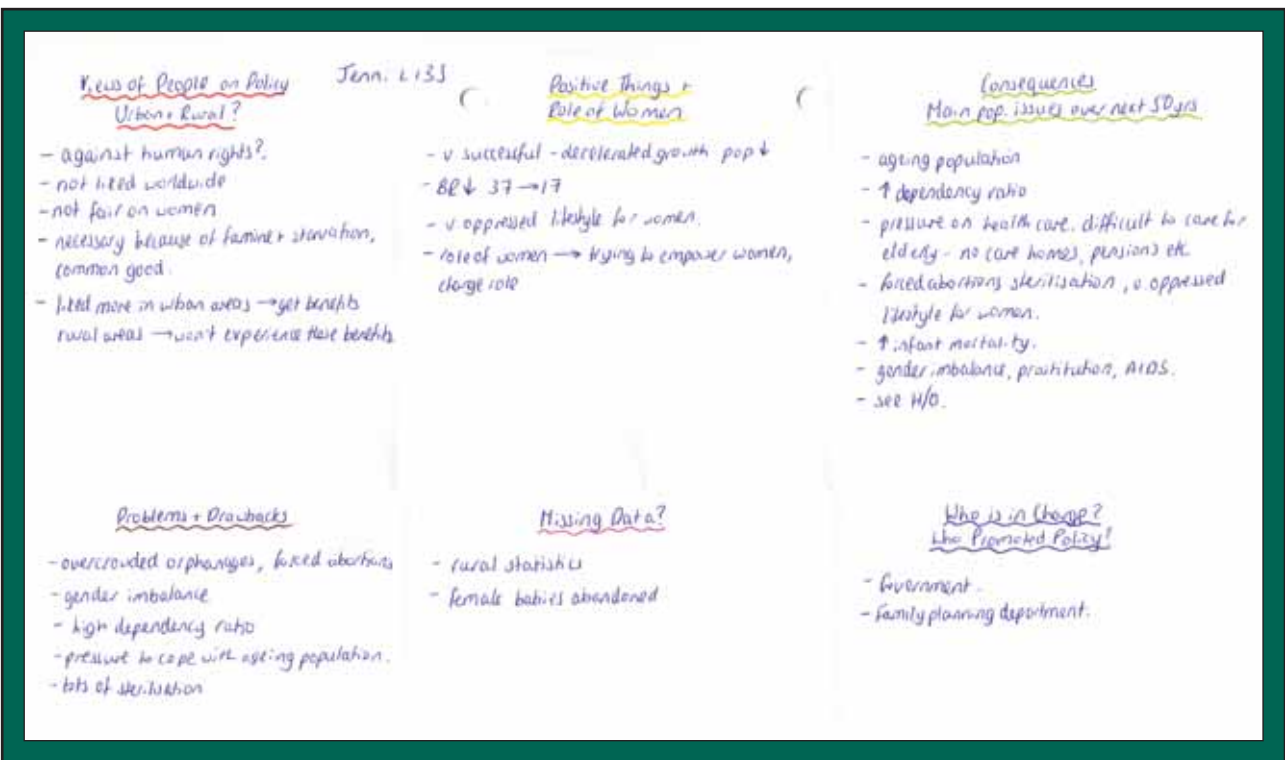 Views of People on Policy
Urban + Rural?
- against human rights?
- not liked worldwide
- not fair on women
- necessary because of famine + starvation,
common good.
- liked more in urban areas → get benefits
rural areas → won't experience these benefits
Jenni L13J
Positive Things +
Role of Women
- v successful - decelerated growth pop ↓
- BR ↓ 37 → 17
- v. oppressed lifestyle for women.
- role of women → trying to empower women,
change role
Consequences
Main pop. issues over next 50yrs
- ageing population
- ↑ dependency ratio
- pressure on health care. difficult to care for
elderly - no care homes, pensions etc.
- forced abortions sterilisation, v. oppressed
lifestyle for women.
- ↑ infant mortality.
- gender imbalance, prostitution, AIDS.
- see H/O.
Problems + Drawbacks
- overcrowded orphanages, forced abortions
- gender imbalance
- high dependency ratio
- pressure to cope with ageing population.
- lots of sterilisation
Missing Data?
- rural statistics
- female babies abandoned
Who is in Charge?
Who Promoted Policy?
- Government.
- Family planning department.